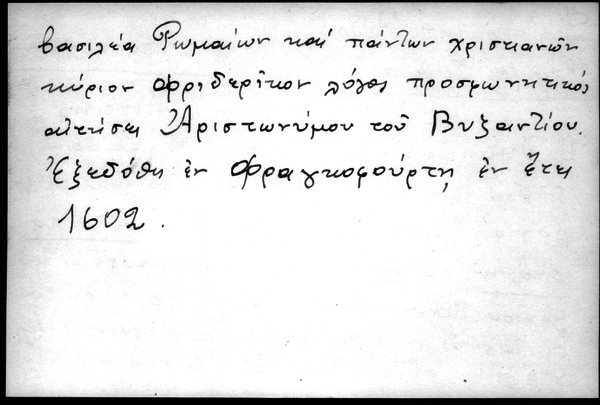 βασιλέα Ῥωμαίων καί πάντων χριστιανῶν
κύριον Φριδερῖκον λόγος προσφωνητικός
αἰτήσει Ἀριστωνύμου τοῦ Βυζαντίου.
Ἐξεδόθη ἐν Φραγκοφούρτῃ ἐν ἔτει
1602.